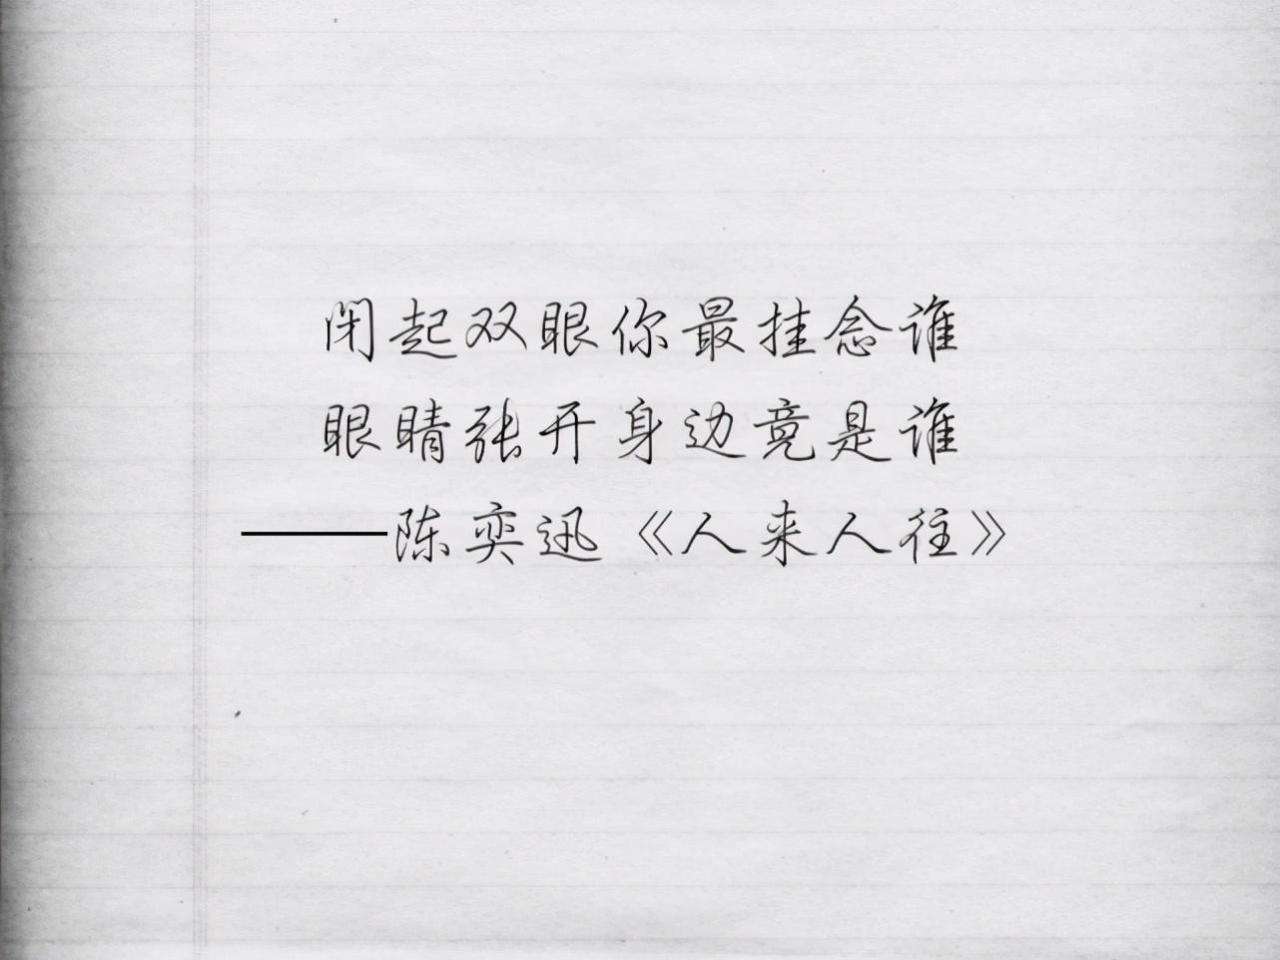 闭起双眼你最挂念谁
眼睛张开身边竟是谁
——陈奕迅《人来人往》